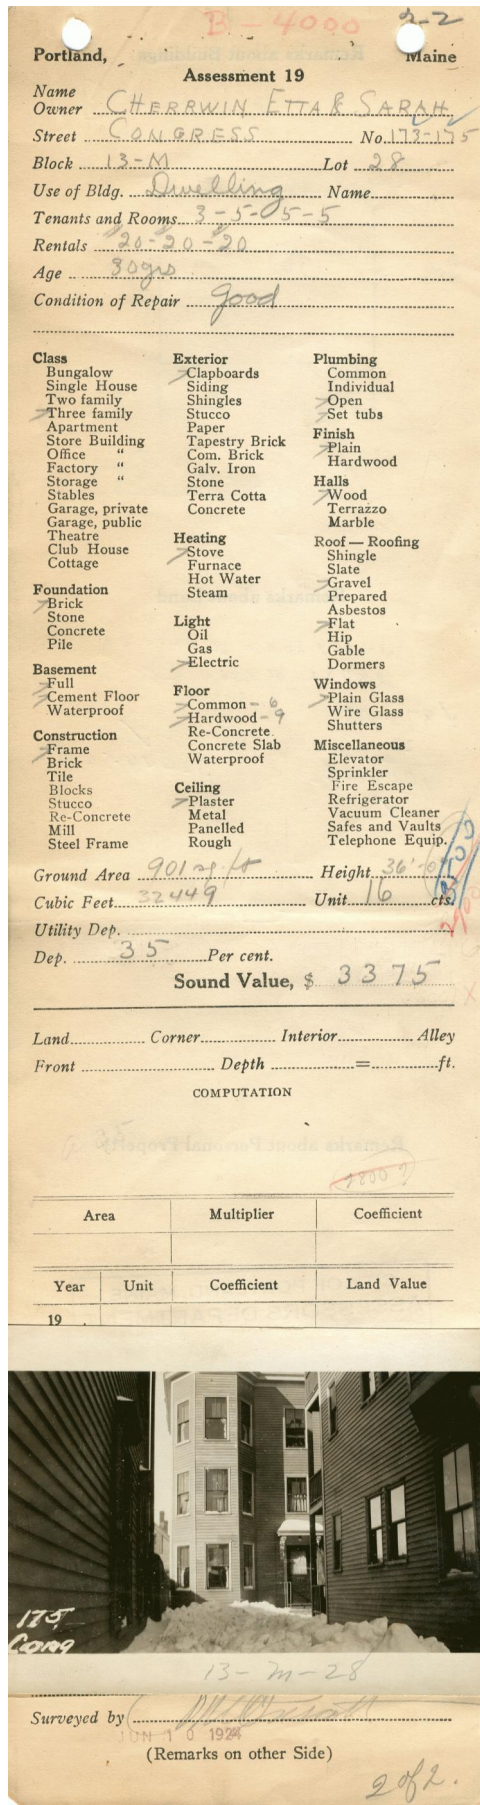 B-4000
2-2
Portland, Maine
Assessment 19
Name
Owner CHERRWIN ETTA & SARAH
Street CONGRESS No. 173-175
Block 13-M Lot 28
Use of Bldg. Dwelling Name
Tenants and Rooms 3-5-5-5
Rentals $20-$20-$20
Age 30yrs
Condition of Repair good
Class
Bungalow
Single House
Two family
Three family
Apartment
Store Building
Office "
Factory "
Storage "
Stables
Garage, private
Garage, public
Theatre
Club House
Cottage
Foundation
Brick
Stone
Concrete
Pile
Basement
Full
Cement Floor
Waterproof
Construction
Frame
Brick
Tile
Blocks
Stucco
Re-Concrete
Mill
Steel Frame
Exterior
Clapboards
Siding
Shingles
Stucco
Paper
Tapestry Brick
Com. Brick
Galv. Iron
Stone
Terra Cotta
Concrete
Heating
Stove
Furnace
Hot Water
Steam
Light
Oil
Gas
Electric
Floor
Common - 6
Hardwood - 9
Re-Concrete
Concrete Slab
Waterproof
Ceiling
Plaster
Metal
Panelled
Rough
Plumbing
Common
Individual
Open
Set tubs
Finish
Plain
Hardwood
Halls
Wood
Terrazzo
Marble
Roof — Roofing
Shingle
Slate
Gravel
Prepared
Asbestos
Flat
Hip
Gable
Dormers
Windows
Plain Glass
Wire Glass
Shutters
Miscellaneous
Elevator
Sprinkler
Fire Escape
Refrigerator
Vacuum Cleaner
Safes and Vaults
Telephone Equip.
Ground Area 901 sq ft Height 36'-0"
Cubic Feet 32449 Unit 16 cts.
Utility Dep.
Dep. 35 Per cent.
Sound Value, $ 3375
Land Corner Interior Alley
Front Depth = ft.
COMPUTATION
Area Multiplier Coefficient
Year Unit Coefficient Land Value
19
175
Cong
13-M-28
Surveyed by
JUN 10 1924
(Remarks on other Side)
2 of 2.